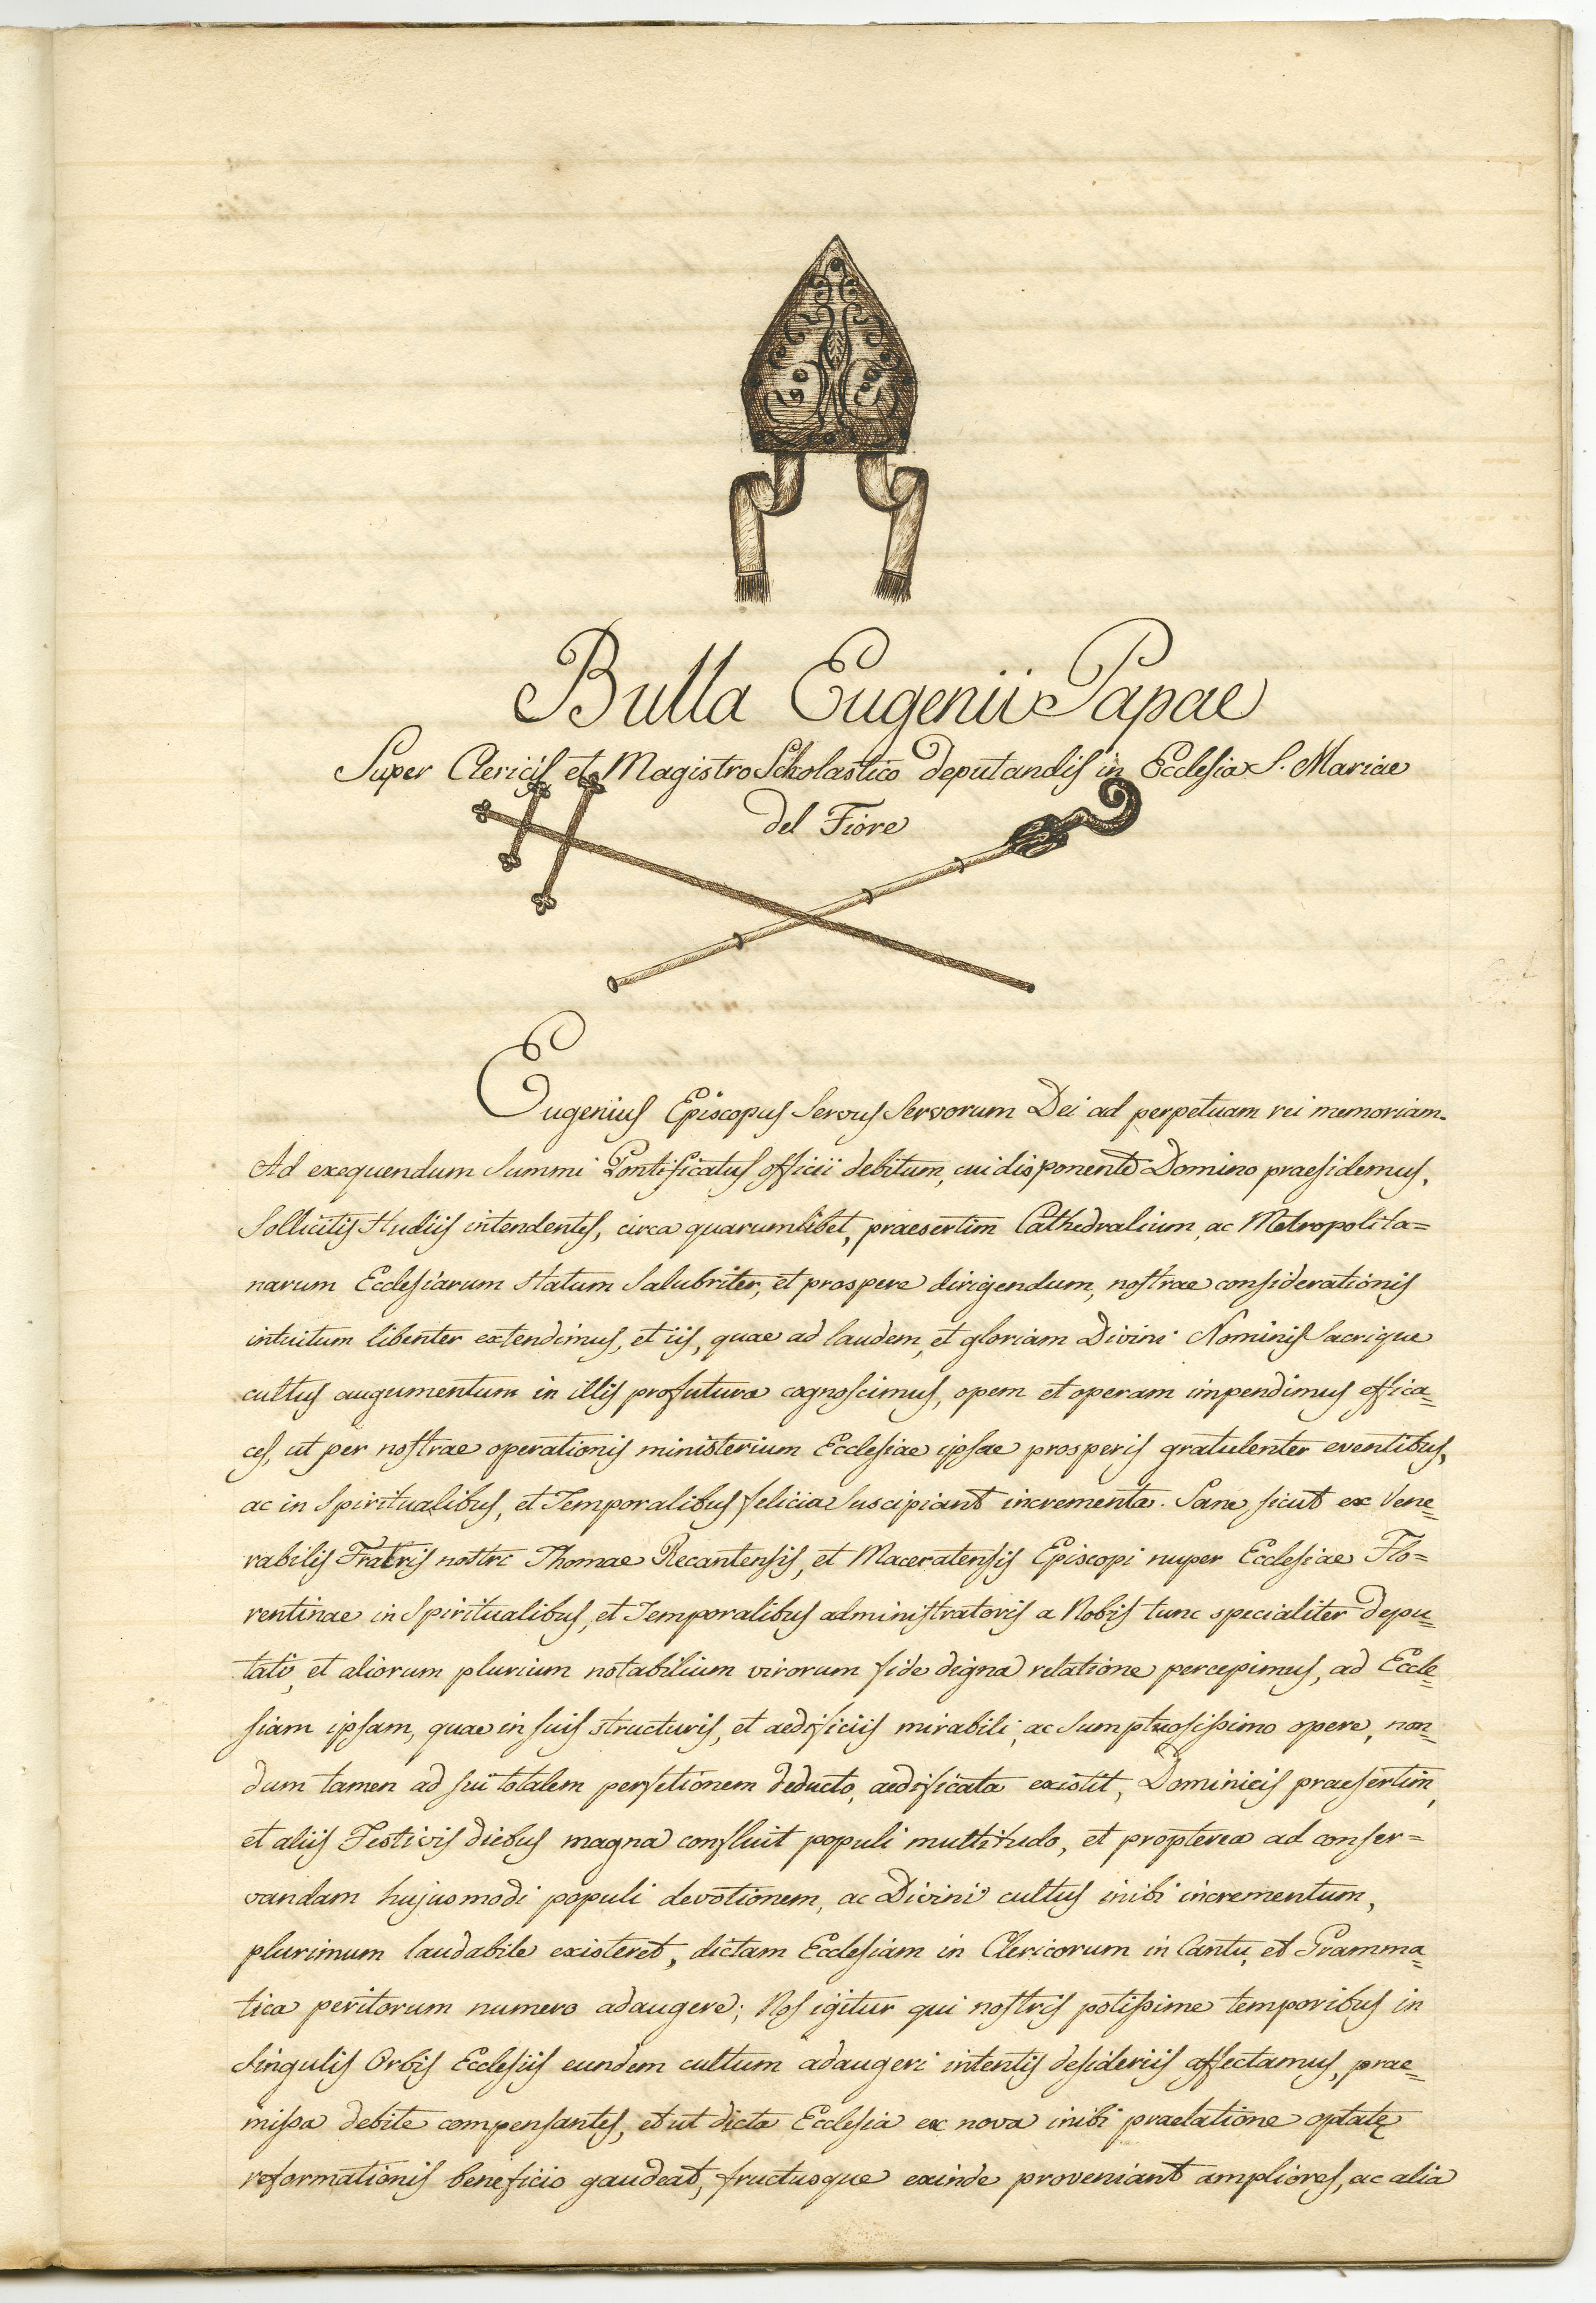 Bulla Eugenii Papae
Super Clericis et Magistro Scholastico deputandis in Ecclesia S. Mariae
del Fiore
Eugenius Episcopus Servus Servorum Dei ad perpetuam rei memoriam.
Ad exequendum Summi Pontificatus officii debitum, cui disponente Domino praesidemus,
Sollicitis Studiis intendentes, circa quarumlibet, praesertim Cathedralium, ac Metropolita=
narum Ecclesiarum Statum Salubriter, et prospere dirigendum, nostrae considerationis
intuitum libenter extendimus, et iis, quae ad laudem, et gloriam Divini Nominis Sacrique
cultus augumentum in illis profutura cognoscimus, opem et operam impendimus effica=
ces, ut per nostrae operationis ministerium Ecclesiae ipsae prosperis gratulenter eventibus,
ac in Spiritualibus, et Temporalibus felicia Suscipiant incrementa. Sane, sicut ex Vene=
rabilis Fratris nostri Thomae Recantensis, et Maceratensis Episcopi nuper Ecclesiae Flo=
rentinae in Spiritualibus, et Temporalibus administratoris a Nobis tunc specialiter depu=
tati, et aliorum plurium notabilium virorum fide digna relatione percepimus, ad Eccle=
siam ipsam, quae in suis structuris, et aedificiis mirabili, ac Sumptuosissimo opere, non=
dum tamen ad sui totalem perfetionem deducto, aedificata existit, Dominicis praesertim,
et aliis Festivis diebus magna confluit populi multitudo, et propterea ad conser=
vandam hujusmodi populi devotionem, ac Divini cultus inibi incrementum,
plurimum laudabile existeret, dictam Ecclesiam in Clericorum in Cantu, et Gramma=
tica peritorum numero adaugere; Nos igitur qui nostris potissime temporibus in
Singulis Orbis Ecclesiis eundem cultum adaugeri intentis desideriis affectamus, prae=
missa debite compensantes, et ut dicta Ecclesia ex nova inibi praelatione optatę
reformationis beneficio gaudeat, fructusque exinde proveniant ampliores, ac alia